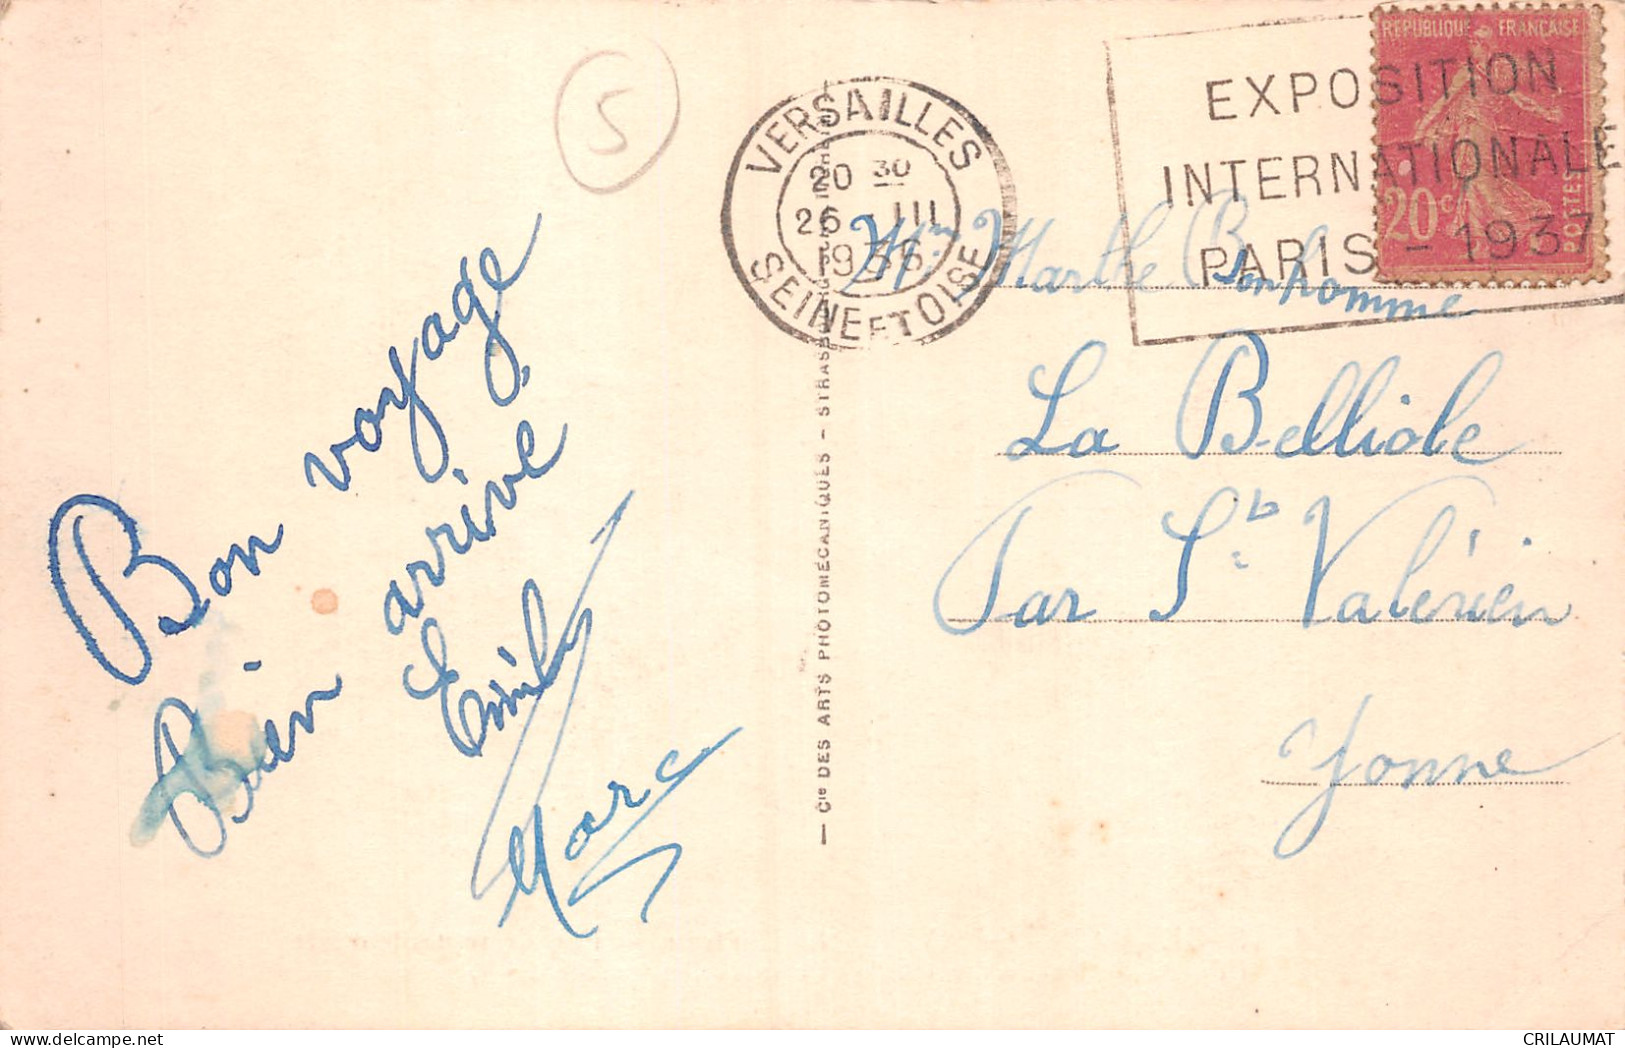 5
VERSAILLES
20 30
26 - III
1936
SEINE ET OISE
EXPOSITION
INTERNATIONALE
PARIS - 1937
REPUBLIQUE FRANÇAISE
20c
POSTES
Bon voyage
Bien arrivé
Emil
Marc
— Cie DES ARTS PHOTOMÉCANIQUES - STRASB
Marthe Bonhomme
La Belliole
Par St Valérien
Yonne
CRILAUMAT